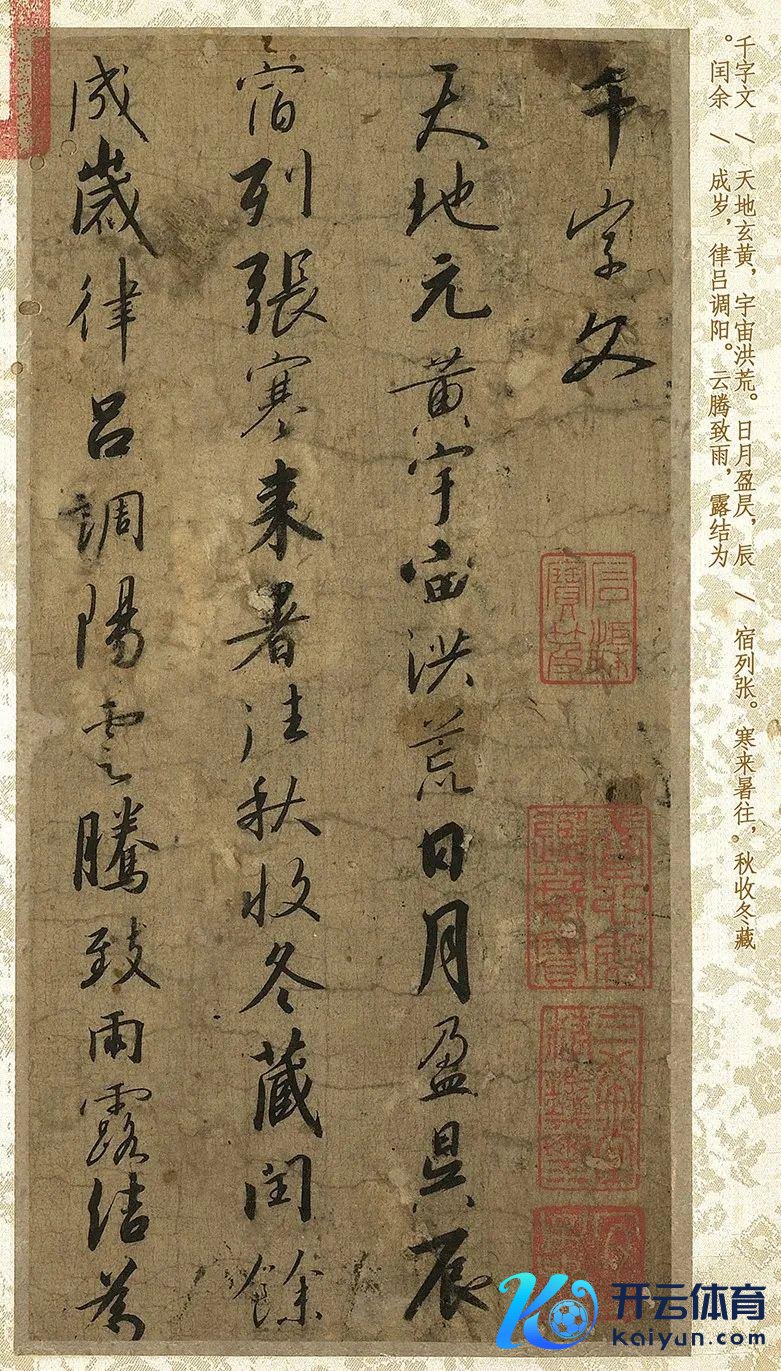 千字文 / 天地玄黄，宇宙洪荒。日月盈昃，辰 / 宿列张。寒来暑往，秋收冬藏
。闰余 / 成岁，律吕调阳。云腾致雨，露结为
千字文
天地元黄宇宙洪荒日月盈昃辰
宿列張寒来暑往秋收冬藏闰餘
成歲律吕調陽雲騰致雨露结為
三希堂精鑑璽
开云体育
kaiyun.com